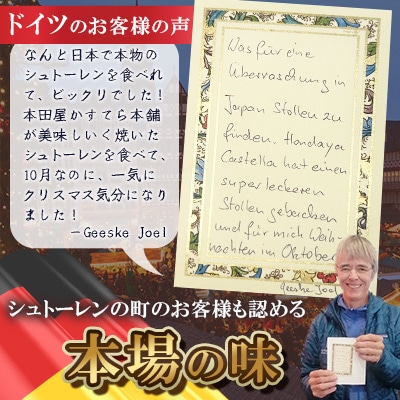 ドイツのお客様の声
なんと日本で本物の
シュトーレンを食べれ
て、ビックリでした!
本田屋かすてら本舗
が美味しいく焼いた
シュトーレンを食べて、
10月なのに、一気に
クリスマス気分になり
ました!
ーGeeske Joel
Was für eine
Überraschung in
Japan Stollen zu
finden. Handaya
Castella hat einen
super leckeren
Stollen gebacken
und für mich Weih-
nachten im Oktober
Geeske Joel
シュトーレンの町のお客様も認める
本場の味